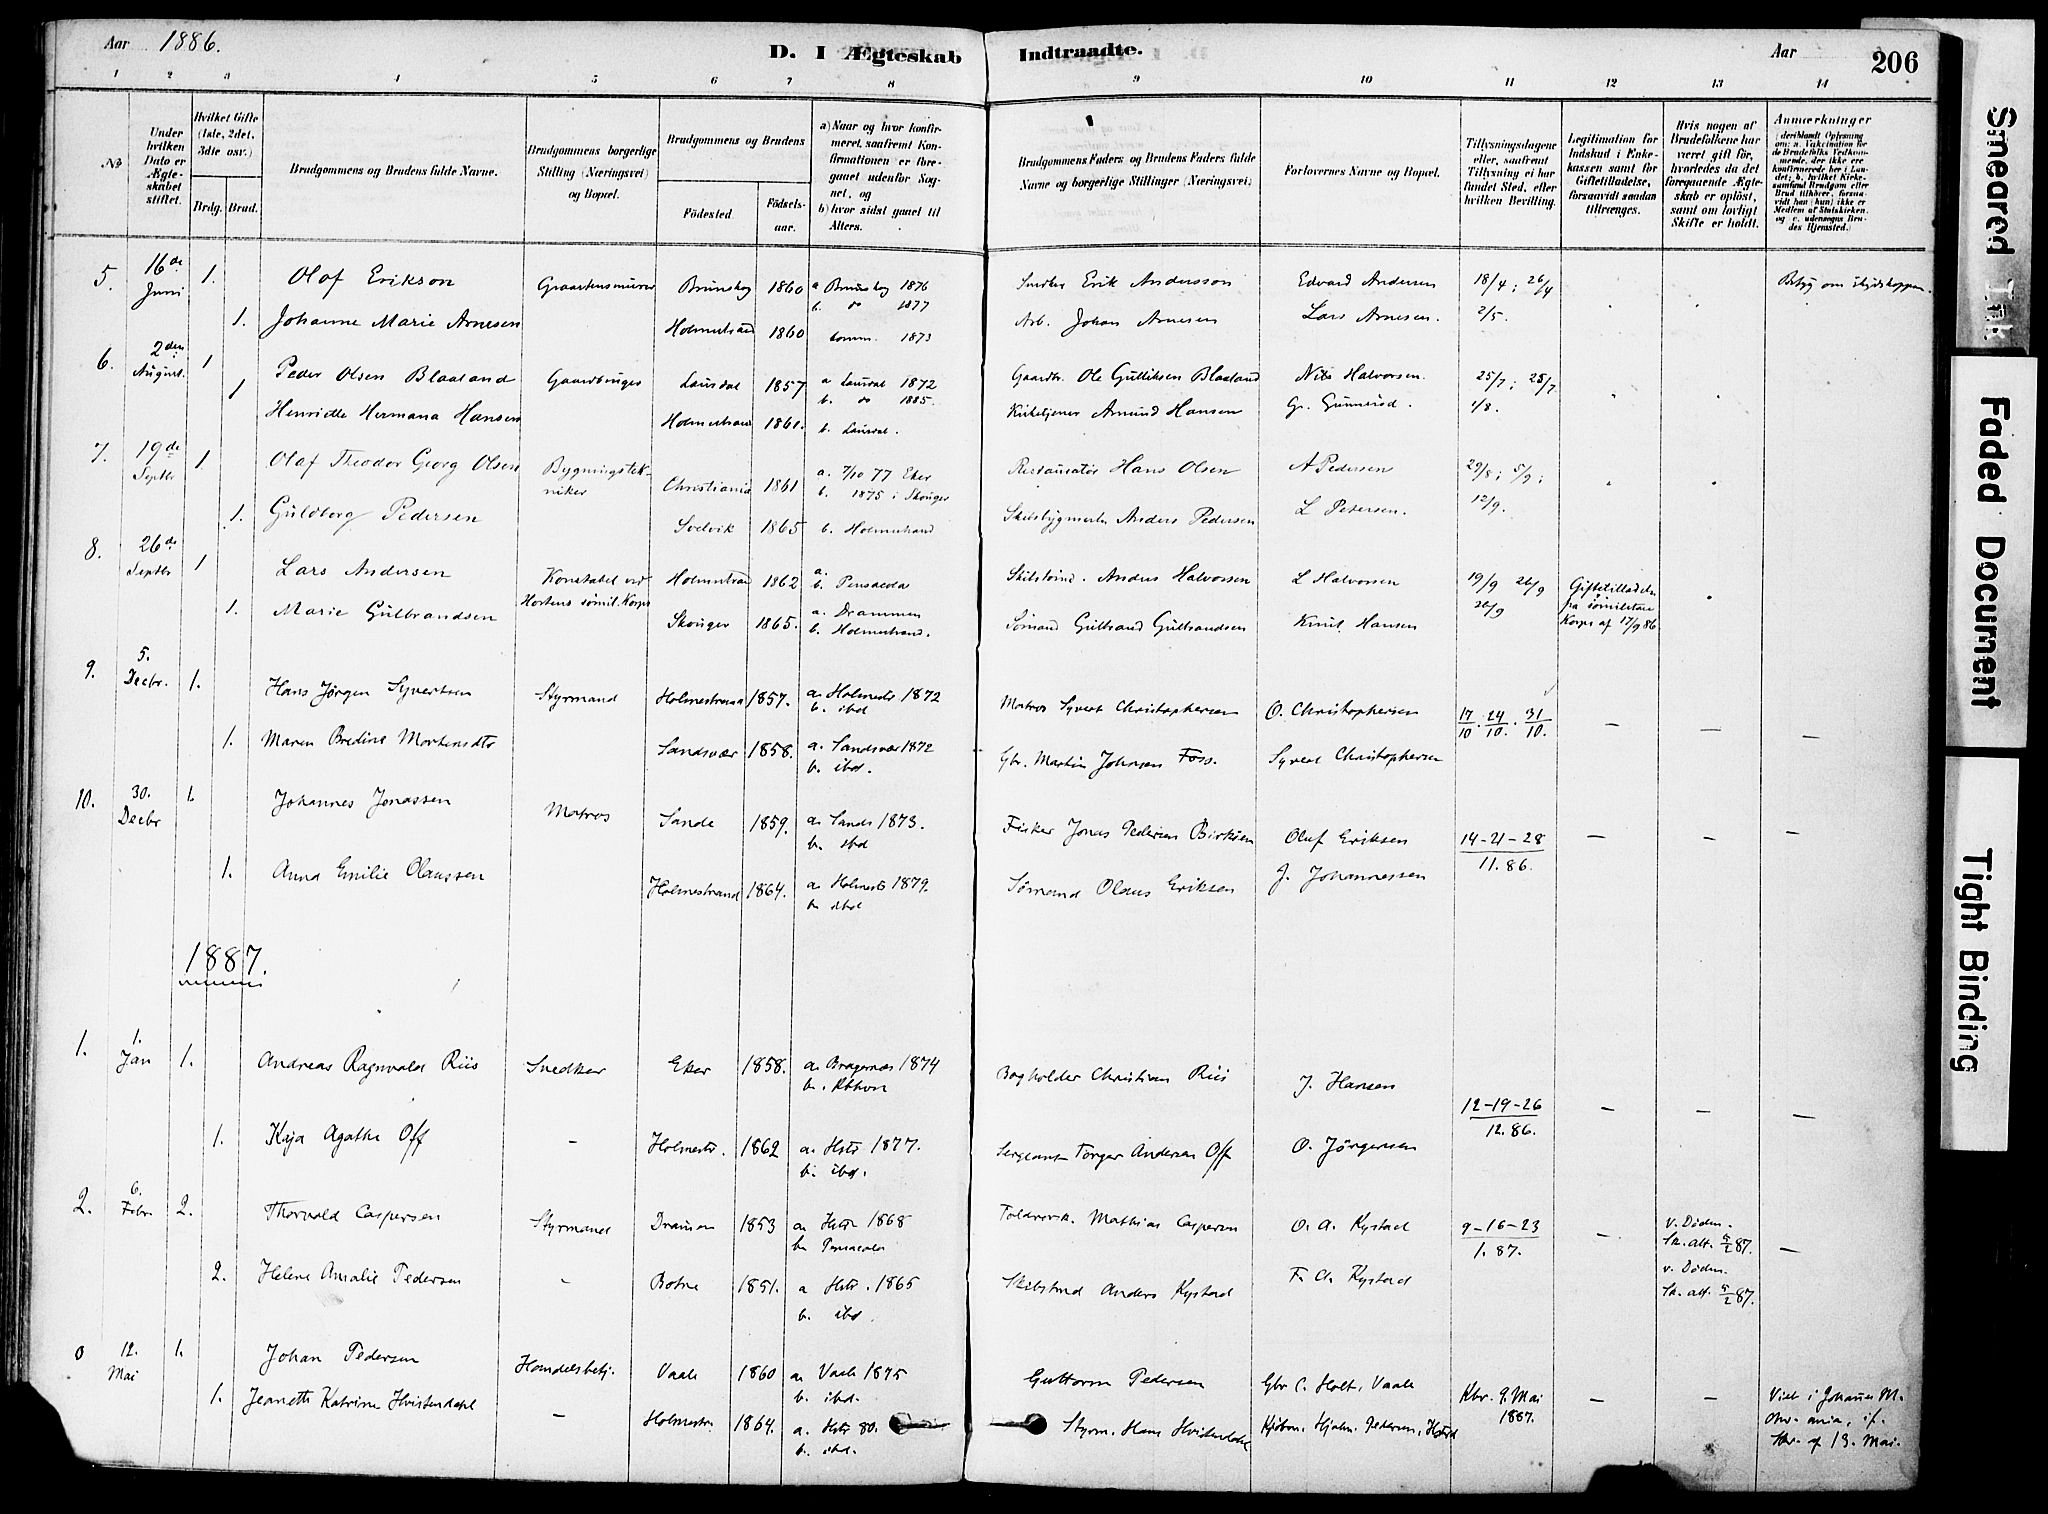 Aar 1886.
D. I Ægteskab Indtraadte.
Aar
206
1 2 3 4 5 6 7 8 9 10 11 12 13 14
No
Under hvilken Dato er Ægteskabet stiftet.
Hvilket Gifte (1ste, 2det, 3die osv.)
Brdg. Brud.
Brudgommens og Brudens fulde Navne.
Brudgommens borgerlige Stilling (Næringsvei) og Bopæl.
Brudgommens og Brudens
Födested.
Födsels-aar.
a) Naar og hvor konfirmeret, saafremt Konfirmationen er foregaaet udenfor Sognet, og
b) hvor sidst gaaet til Alters.
Brudgommens Faders og Brudens Faders fulde Navne og borgerlige Stillinger (Næringsvei)
Forlovernes Navne og Bopæl.
Tillysningsdagene eller, saafremt Tillysning ei har fundet Sted, efter hvilken Bevilling.
Legitimation for Indskud i Enkekassen samt for Giftetilladelse, forsaavidt saadan tiltrænges.
Hvis nogen af Brudefolkene har været gift för, hvorledes da det foregaaende Ægteskab er oplöst, samt om lovligt Skifte er holdt.
Anmærkninger
5. 16de Juni 1. Olof Erikson Brunskog 1860 a Brunskog 1876 Erik Andersson Edvard Andersen 18/4; 26/4
b. do 1877
1. Johanne Marie Arnesen Holmestrand 1860 1873 Arb. Johan Arnesen Lars Arnesen. 2/5.
6. 2den August. 1 Peder Olsen Blaaland Gaardbruger Laurdal 1857 a Laurdal 1872 Gaardbr. Ole Gulliksen Blaaland Nils Halvorsen. 25/7; 25/7
b. do 1885.
1 Henriette Hermana Hansen Holmestrand 1861. b. Laurdal. Kirketjener Amund Hansen 1/8.
7. 19de Septbr 1. Olaf Theodor Georg Olsen Bygningstekniker Christiania 1861 a. 7/10 77 Eker Restauratør Hans Olsen A Pedersen 29/8; 5/9;
b. 1875 i Skouger
1. Guldborg Pedersen Svelvik 1865 b. Holmestrand Skibsbygmester Anders Pedersen L Petersen. 12/9.
8. 26de Septbr 1 Lars Andersen Konstabel ved Hortens sømil. Korps Holmestrand 1862 a. b. Pensacola Anders Halvorsen L Halvorsen 19/9 26/9 Giftetilladelse fra sømilitære Korps af 17/9 86
1. Marie Gulbrandsen Skouger 1865. a. Drammen b. Holmestrand. Sømand Gulbrand Gulbrandsen Knut Hansen
9. 5. Decbr. 1. Hans Jørgen Syvertsen Styrmand Holmestrand 1857. a. Holmestr 1872 b. ibd Matros Syvert Christophersen O. Christophersen 17/10. 24/10. 31/10. — — —
1. Maren Bredine Mortensdtr Sandsvær 1858. a. Sandsvær 1872 b. ibd. Gbr. Martin Johnsen Foss. Syvert Christophersen
10. 30. Decbr 1. Johannes Jonassen Matros Sande 1859. a. Sande 1873. b. ibd Fisker Jonas Pedersen Oluf Eriksen 14-21-28 11.86. — — —
1. Anna Emilie Olaussen Holmestrand 1864. a. Holmestr 1879. b. ibd Sømand Olaus Eriksen J. Johannessen
1887.
1. 1. Jan 1. Andreas Ragnvald Riis Snedker Eker 1858. a. Bragernæs 1874 Bogholder Christian Riis J. Hansen
12-19-26 12.86. — — —
1. Kaja Agathe Off — Holmestr. 1862 a. Hstr 1877. b. ibd. Sergeant Torger Andersen Off O. Jørgensen
2. 6. Febr. 2. Thorvald Caspersen Styrmand Drammen 1853 a. Hstr 1868 b. Pensacola Mathias Caspersen O. A. Kystad 9-16-23 1.87. — v. Døden. Sk. att. 5/2 87. —
2. Helene Amalie Pedersen — Botne 1851. a Hstr. 1865 b. ibd. Anders Kystad F. A. Kystad v. Døden. Sk. att. 5/2 87.
12. Mai 1. Johan Pedersen Handelsbetj. Vaale 1860 a. Vaale 1875 b. ibd. Guttorm Pedersen Gbr C. Holt, Vaale Kbr. 9. Mai 1887. — —
1. Jeanette Katrine Hvistendahl — Holmestr. 1864. a. Hstr 80. b. ibd. Styrm. Hans Hvistendahl Kjøbm. Hjalm. Pedersen, Hstrd
Smeared Ink
Faded Document
Tight Binding